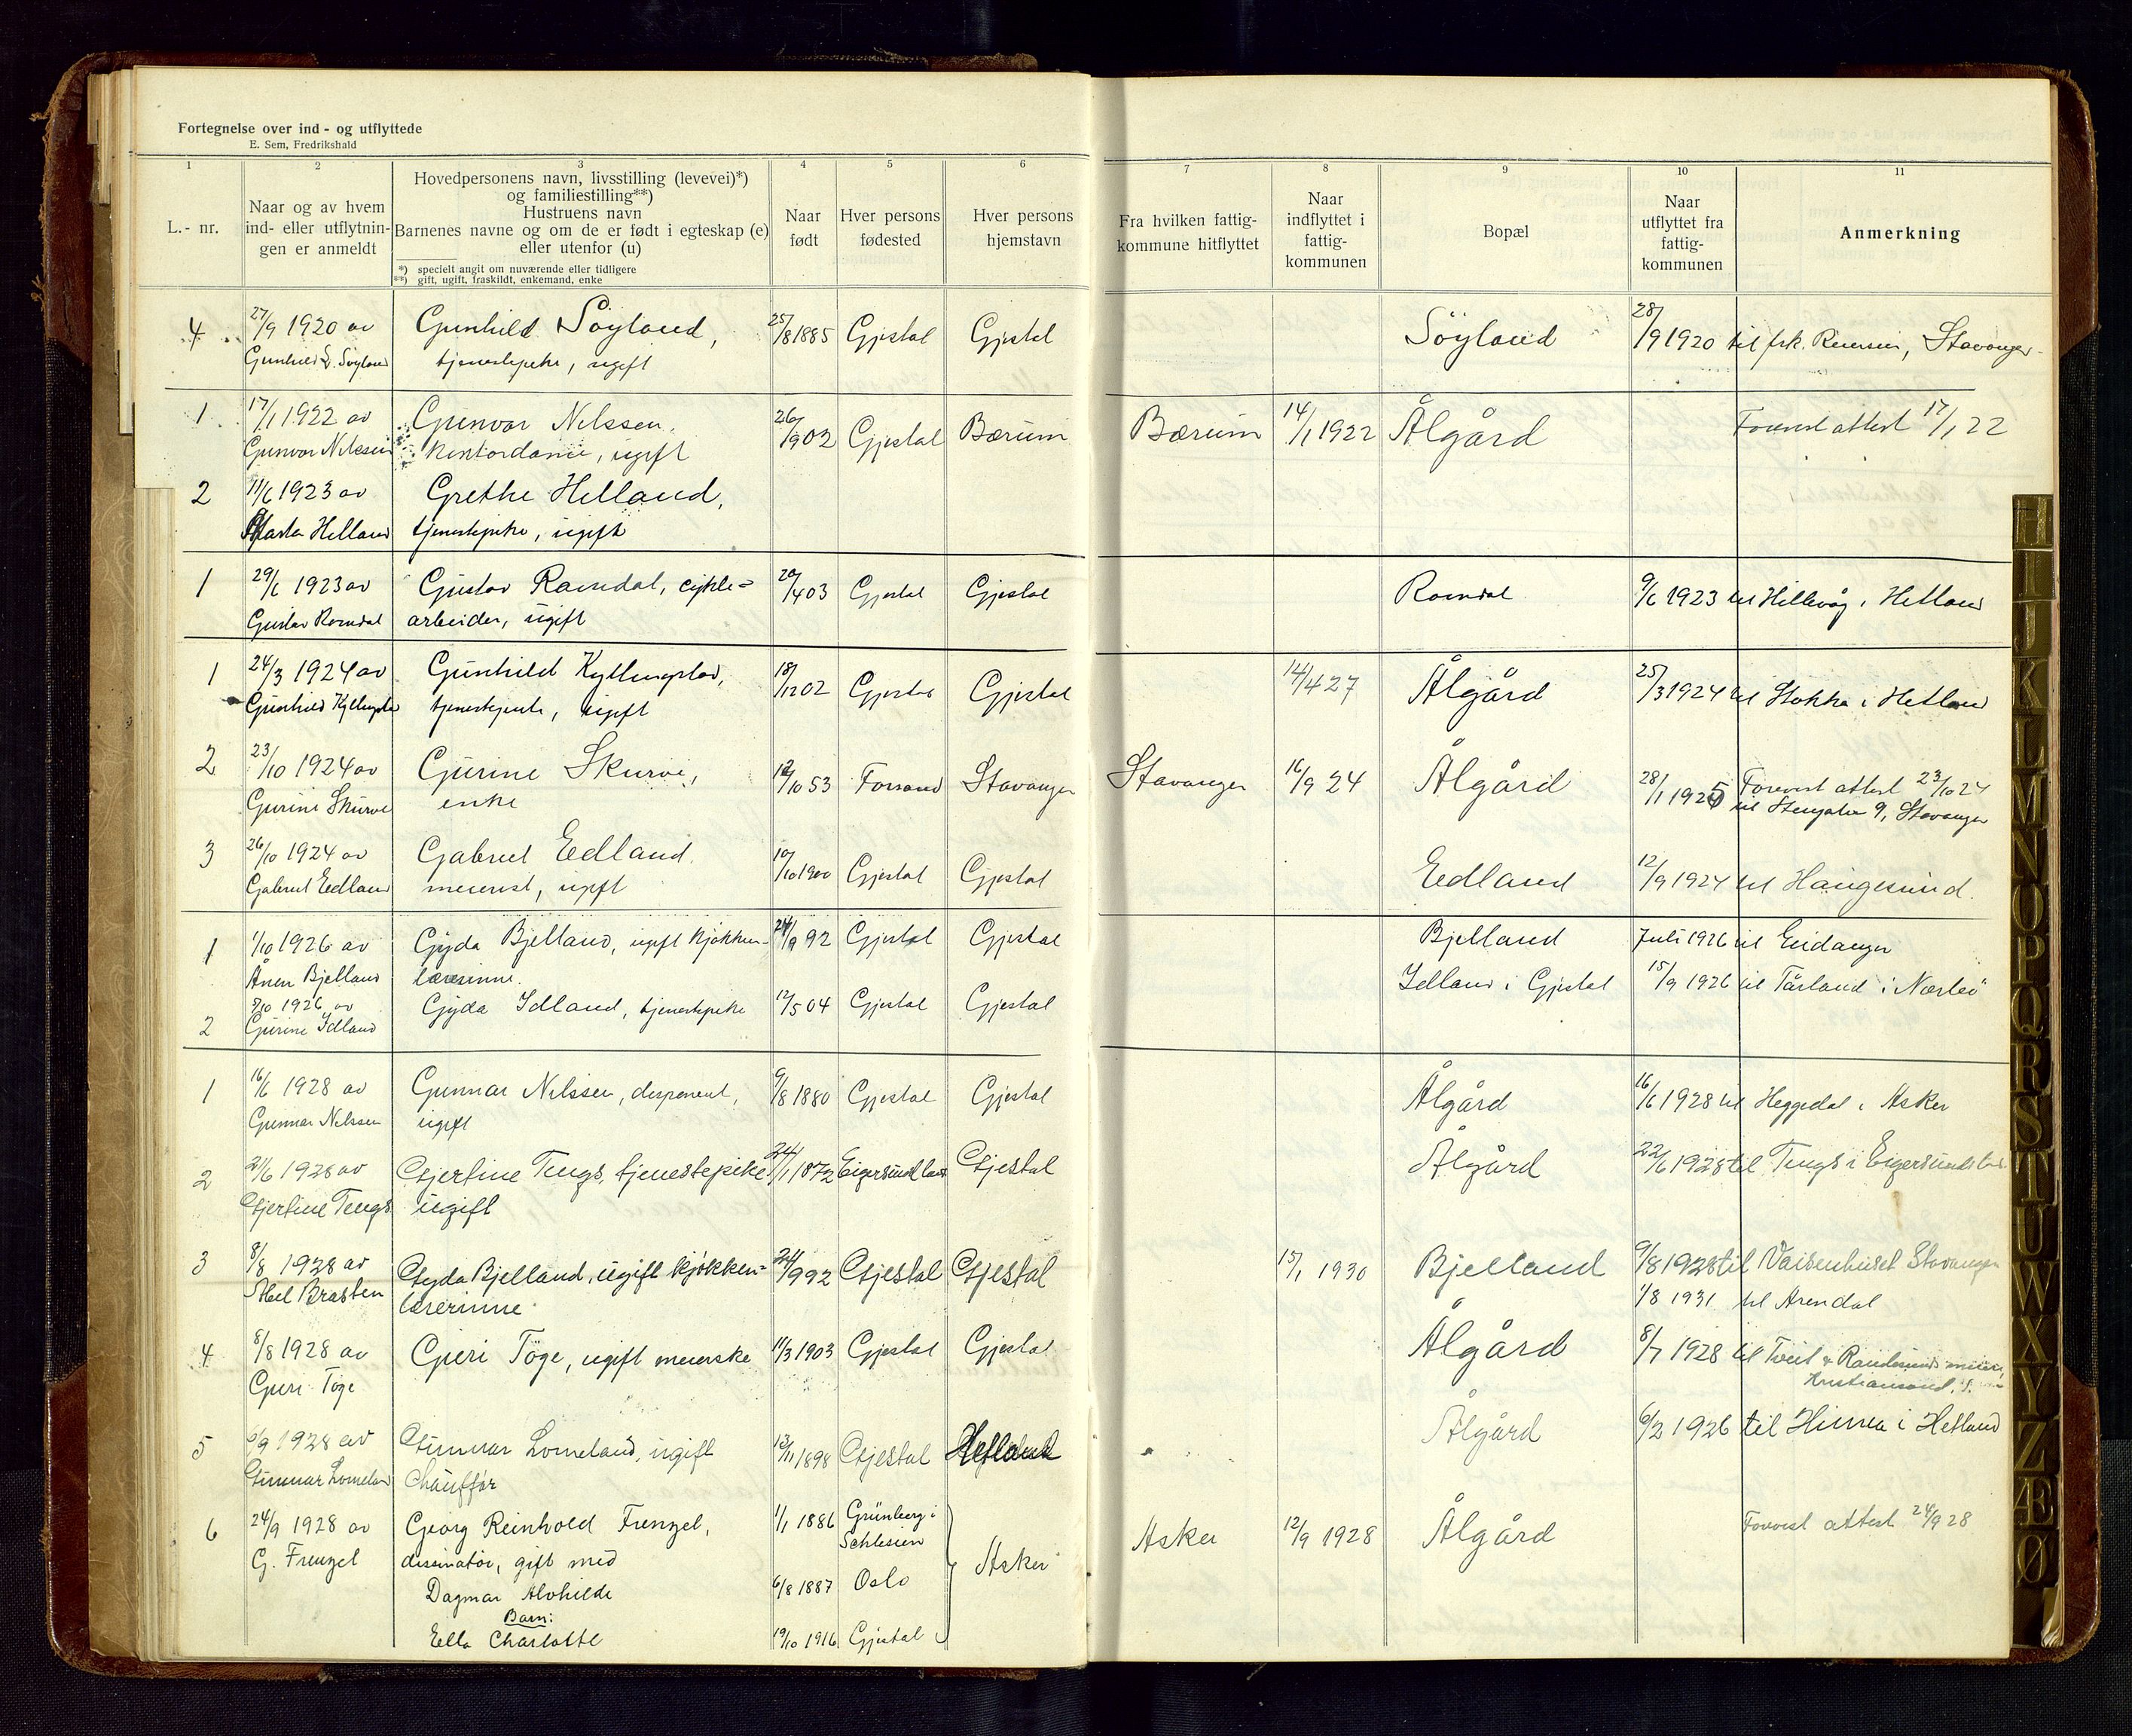 Fortegnelse over ind - og utflyttede
E. Sem, Fredrikshald
1 2 3 4 5 6 7 8 9 10 11
L.- nr.
Naar og av hvem
ind- eller utflytnin-
gen er anmeldt
Hovedpersonens navn, livsstilling (levevei)*)
og familiestilling**)
Hustruens navn
Barnenes navne og om de er født i egteskap (e)
eller utenfor (u)
*) specielt angit om nuværende eller tidligere
**) gift, ugift, fraskildt, enkemand, enke
Naar
født
Hver persons
fødested
Hver persons
hjemstavn
Fra hvilken fattig-
kommune hitflyttet
Naar
indflyttet i
fattig-
kommunen
Bopæl
Naar
utflyttet fra
fattig-
kommunen
Anmerkning
4 27/9 1920 av Gunhild Söyland, 25/8 1885 Gjestal Gjestal Söyland 28/9 1920 til frk. Stavanger
Gunhild Söyland tjenestepike, ugift
1 17/1 1922 av Gunvor Nilssen, 26/9 02 Gjestal Bærum Bærum 14/1 1922 Ålgård Forevist attest 17/1 22
Gunvor Nilssen kontordame, ugift
2 11/6 1923 av Grethe Helland,
Marta Helland tjenestepike, ugift
1 29/6 1923 av Gustav Ramdal, cykle- 20/4 03 Gjestal Gjestal Ramdal 9/6 1923 til Hillevåg i Hetland
Gustav Ramdal arbeider, ugift
1 24/3 1924 av Gunhild Kyllingstad, 18/12 02 Gjestal Gjestal 14/4 27 Ålgård 25/3 1924 til Stokka i Hetland
Gunhild Kyllingstad tjenestepike, ugift
2 23/10 1924 av Gurine Skurve, 12/10 53 Forsand Stavanger Stavanger 16/9 24 Ålgård 28/1 1925 Forevist attest 23/10 24
Gurine Skurve enke til 9, Stavanger
3 26/10 1924 av Gabriel Edland, 10/10 1900 Gjestal Gjestal Edland 12/9 1924 til Haugesund.
Gabriel Edland meierist, ugift
1 1/10 1926 av Gyda Bjelland, ugift kjøkken- 24/9 92 Gjestal Gjestal Bjelland Juli 1926 til Eidanger
Ånen Bjelland lærerinne.
2 9/10 1926 av Gyda Idland, tjenestepike 12/5 04 Gjestal Gjestal Idland i Gjestal 15/9 1926 til Tårland i Nærbø
Gurine Idland
1 16/6 1928 av Gunnar Nilssen, disponent, 9/8 1880 Gjestal Gjestal Ålgård 16/6 1928 til Heggedal i Asker
Gunnar Nilssen ugift
2 21/6 1928 av Gjertine Tengs, tjenestepike 24/1 1872 Eigersund land Gjestal Ålgård 22/6 1928 til Tengs i Eigersund
Gjertine Tengs ugift
3 8/8 1928 av Gyda Bjelland, ugift kjøkken- 24/9 92 Gjestal Gjestal 15/1 1930 Bjelland 9/8 1928 til Vaisenhuset Stavanger
Brasten lærerinne 1/8 1931 til Arendal
4 8/8 1928 av Guri Töge, ugift meierske 11/3 1903 Gjestal Gjestal Ålgård 8/7 1928 til Tveit & Randesunds meieri,
Guri Töge Kristiansand. S.
5 6/9 1928 av Gunnar Lomeland, ugift 13/11 1898 Gjestal Hetland Ålgård 6/2 1926 til Hinna i Hetland
Gunnar Lomeland Chauffør
6 24/9 1928 av Georg Reinhold Frenzel, 1/1 1886 Grünberg i Asker Asker 12/9 1928 Ålgård Forevist attest 24/9 28
G. Frenzel dessinatör, gift med Schlesien
Dagmar Alvhilde 6/8 1887 Oslo
Barn:
Ella Charlotte 19/10 1916 Gjestal
H
I
J
K
L
M
N
O
P
Q
R
S
T
U
W
X
Y
Z
Æ
Ø